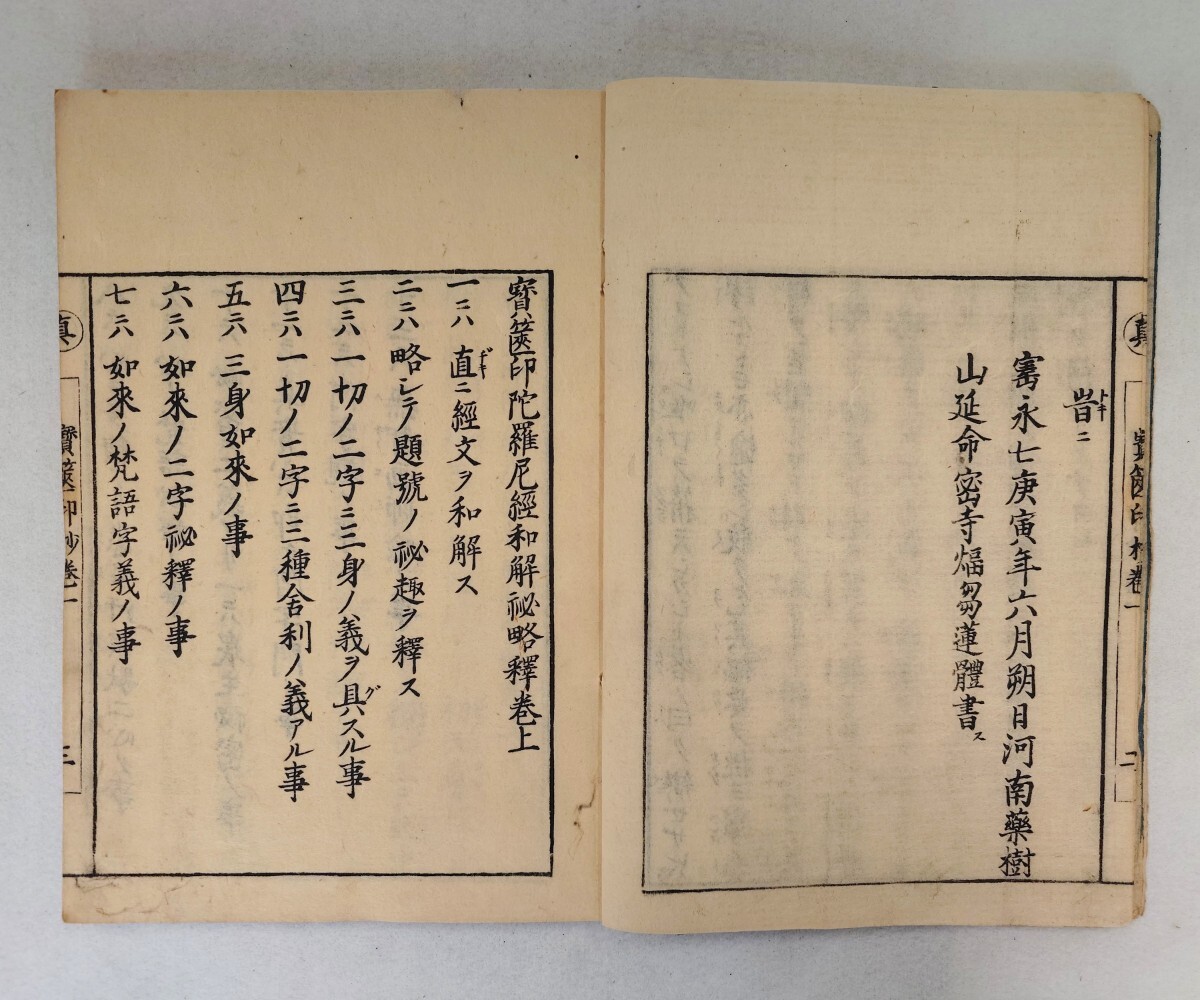 旹ニ
トキ
寳永七庚寅年六月朔日河南藥樹
山延命密寺蓮體書ス
寳篋印陀羅尼經和解祕略釋卷上
一ニハ直ニ經文ヲ和解ス
二ニハ略シテ題號ノ祕趣ヲ釋ス
三ニハ一切ノ二字ニ三身ノ義ヲ具スル事
グ
四ニハ一切ノ二字ニ三種舍利ノ義アル事
五ニハ三身如來ノ事
六ニハ如來ノ二字祕釋ノ事
七ニハ如來ノ梵語字義ノ事
真
寳篋印鈔卷一
三
真
卷一
二